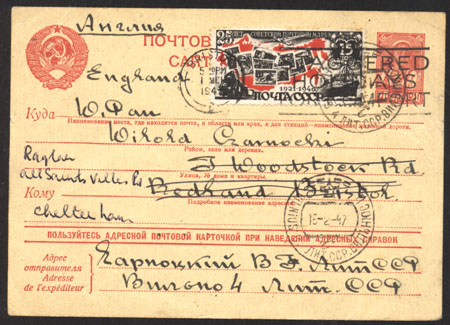 Англия
ПОЧТОВ
England
25 ЛЕТ СОВЕТСКОЙ ПОЧТОВОЙ МАРКИ
1921-1946
ПОЧТА СССР
Куда
Наименование места, где находится почта, и области или края, а для станций - наименование железной дороги.
Район, село или деревня.
Raglan
7 Woodstock Rd
Улица, № дома и квартиры.
All Saints Villas Rd
Redland Bristol
Кому
Подробное наименование адресата
Cheltenham
15-2-47
ПОЛЬЗУЙТЕСЬ АДРЕСНОЙ ПОЧТОВОЙ КАРТОЧКОЙ ПРИ НАВЕДЕНИИ АДРЕСНЫХ СПРАВОК
Адрес
отправителя
Adresse de
l'expéditeur
Чарноцкий В. Лит ССР
Вильно 4 Лит. ССР.